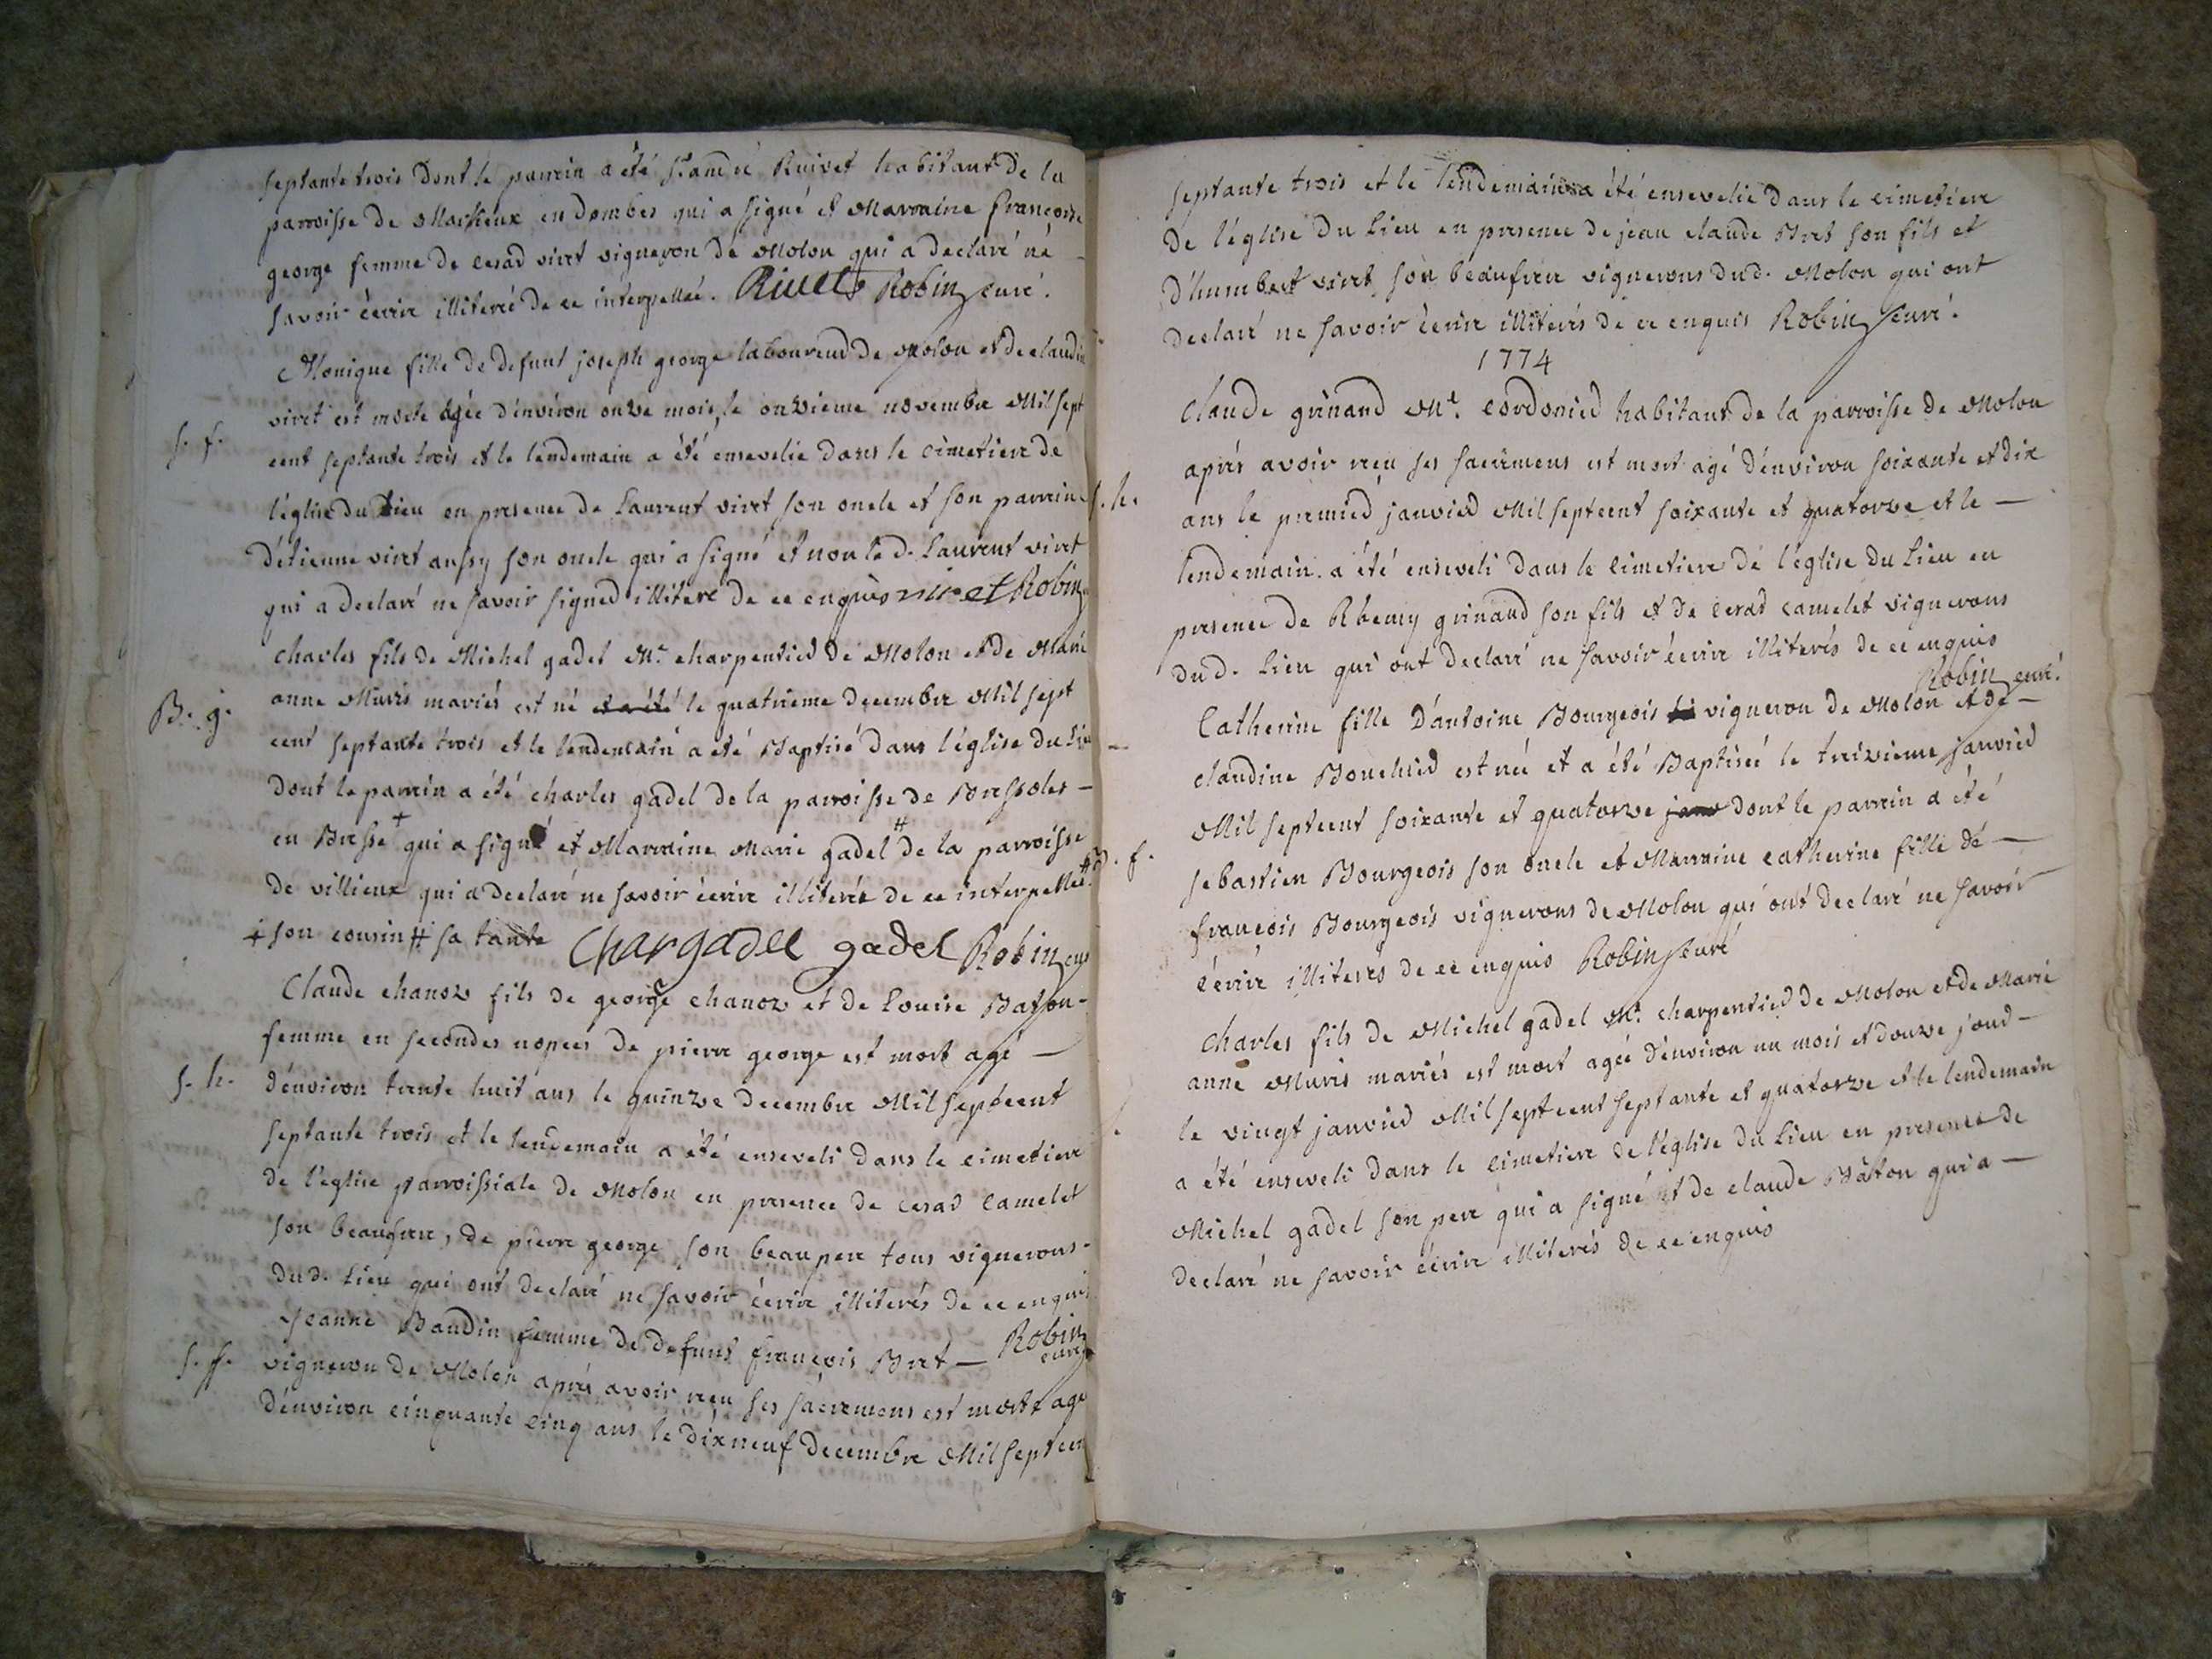 septante trois dont le parrein a été habitant de la
parroisse de en dombes qui a signé et Marraine francoise
george femme de cesar viret vigneron de Molon qui a declaré né
savoir écrire illiteré de ce interpellée. Rivet Robin curé.
Monique fille de defunt joseph george laboureur de Molon et de claudine
viret est morte agée d'environ onze mois, le onzieme novembre Mil sept
s. f.
cent septante trois et le lendemain a été ensevelie dans le cimetiere de
l'église du Lieu en presence de Laurent viret son oncle et son parrein
d'étienne viret aussy son oncle qui a signé et non le d. Laurent viret
qui a declaré ne savoir signer illiteré de ce enquis viret Robin
charles fils de Michel gadel Me. charpentier de Molon et de Marie
anne Muris mariés est né et a été le quatrieme decembre Mil sept
B. g.
cent septante trois et le lendemain a été Baptisé dans l'église du Lieu
dont le parrein a été charles gadel de la parroisse de Bressoles -
en Bresse + qui a signé et Marraine Marie gadel # de la parroisse
de villieux qui a declaré ne savoir écrire illiterée de ce interpellée
+ son cousin # sa tante Char gadel gadel Robin curé
Claude chanoz fils de george chanoz et de Louise Baton -
femme en secondes nopces de pierre george est mort agé -
s. h.
d'environ trente huit ans le quinze decembre Mil septcent
septante trois et le lendemain a été enseveli dans le cimetiere
de l'église parroissiale de Molon en presence de cesar Camelet
son beaufrere, de pierre george son beaupere tous vignerons -
dud. Lieu qui ont declaré ne savoir écrire illiterés de ce enquis
Robin curé
Jeanne Baudin femme de defunt françois Bret -
s. ff.
vigneron de Molon aprés avoir reçu ses sacremens est morte agé
d'environ cinquante cinq ans le dixneuf decembre Mil septcent
septante trois et le lendemain a été ensevelie dans le cimetiere
de l'église du Lieu en presence de jean claude Bret son fils et
d'humbert viret son beaufrere vignerons dud. Molon qui ont
declaré ne savoir écrire illiterés de ce enquis Robin curé.
1774
Claude grinand Me. cordonier habitant de la parroisse de Molon
aprés avoir reçu ses sacremens est mort agé d'environ soixante et dix
s. h.
ans le premier janvier Mil septcent soixante et quatorze et le -
lendemain a été enseveli dans le cimetiere de l'église du Lieu en
presence de Rhemy grinand son fils et de cesar camelet vignerons
dud. Lieu qui ont declaré ne savoir écrire illiterés de ce enquis
Robin curé.
Catherine fille D'antoine Bourgeois vigneron de Molon et de -
claudine Bouchier est née et a été Baptisée le treizieme janvier
Mil septcent soixante et quatorze janv dont le parrein a été
B. f.
sebastien Bourgeois son oncle et Marraine catherine fille de -
françois Bourgeois vignerons de Molon qui ont declaré ne savoir
écrire illiterés de ce enquis Robin curé
Charles fils de Michel gadel Me. charpentier de Molon et de Marie
anne Muris mariés est mort agée d'environ un mois et douze jour -
le vingt janvier Mil septcent septante et quatorze et le lendemain
a été enseveli dans le cimetiere de l'église du Lieu en presence de
Michel gadel son pere qui a signé et de claude Bâton qui a -
declaré ne savoir écrire illiterés de ce enquis